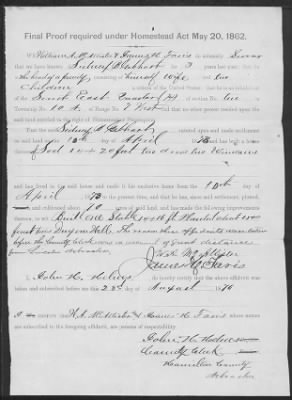 Final Proof required under Homestead Act May 20, 1862.
We William McAllister & James G. Travis do solemnly Swear
that we have known Sidney D. Gebhart for 3 years last past; that
he is the head of a family, consisting of himself wife and two
Children a citizen of the United States; that he is an inhabitant
of the South East Quarter (¼) of section No. two
in Township No. 10 N. of Range No. 7 West and that no other person resided upon the
said land entitled to the right of Homestead or Pre-emption.
That the said Sidney D. Gebhart entered upon and made settlement
on said land on the 10th day of April, 1873 and has built a house
thereon of Sod 14 x 20 feet two doors two Windows
and has lived in the said house and made it his exclusive home from the 10th day of
April, 1873 to the present time, and that he has, since said settlement, plowed,
and cultivated about 10 acres of said land, and has made the following improvements
thereon, to wit: Built one Stable
one Well. The reason these affidavits were taken
before the County Clerk was on account of great distance
from
James G. Travis
I, John H. Helms do hereby certify that the above affidavit
was taken and subscribed before me this 22d day of August 1876
We certify that W. McAllister & James G. Travis whose names
are subscribed to the foregoing affidavit, are persons of respectability.
John H. Helms
County Clerk
Hamilton County
Nebraska